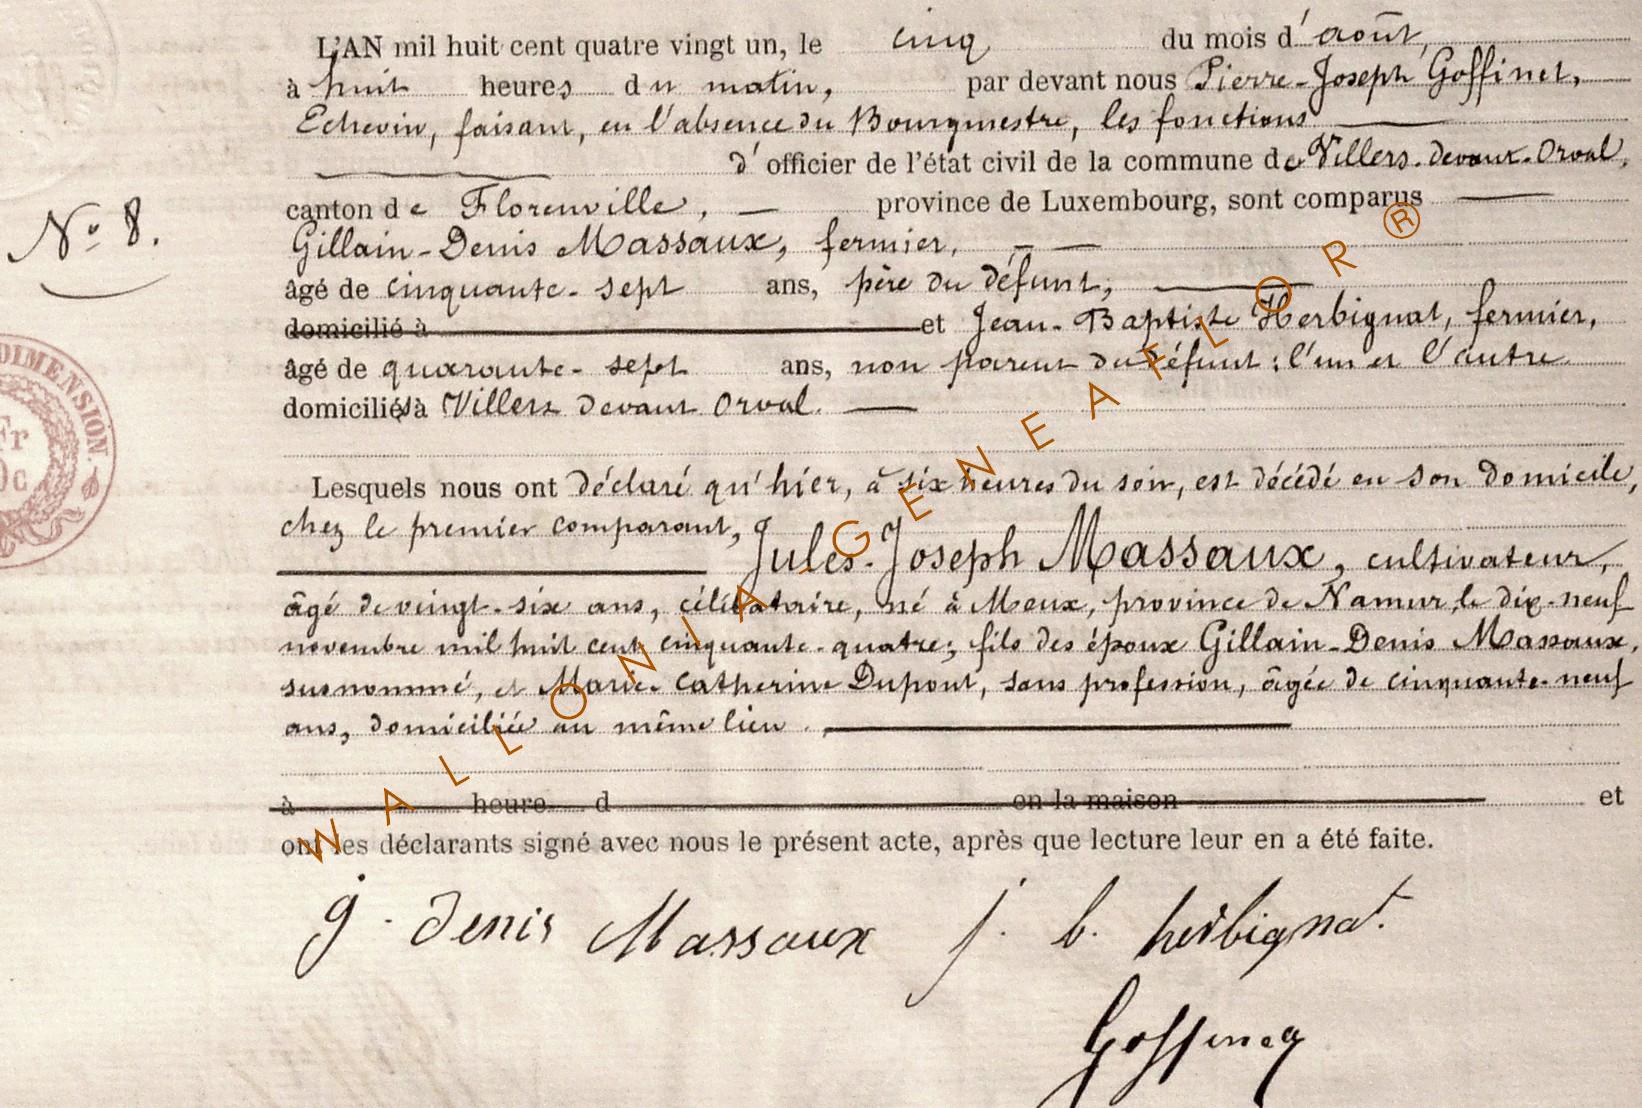 L'AN mil huit cent quatre vingt un, le cinq du mois d'août,
à huit heures du matin, par devant nous Pierre-Joseph Goffinet,
Echevin, faisant, en l'absence du Bourgmestre, les fonctions
d'officier de l'état civil de la commune de Villers-devant-Orval,
canton de Florenville, province de Luxembourg, sont comparus
N° 8.
Gillain-Denis Massaux, fermier,
âgé de cinquante-sept ans, père du défunt,
domicilié à et Jean-Baptiste Herbignat, fermier,
âgé de quarante-sept ans, non parent du défunt; l'un et l'autre
domiciliés à Villers devant Orval.
DIMENSION
Fr
0c
Lesquels nous ont déclaré qu'hier, à six heures du soir, est décédé en son domicile,
chez le premier comparant,
Jules-Joseph Massaux, cultivateur,
âgé de vingt-six ans, célibataire, né à Meux, province de Namur, le dix-neuf
novembre mil huit cent cinquante-quatre; fils des époux Gillain-Denis Massaux,
susnommé, et Marie-Catherine Dupont, sans profession, âgée de cinquante-neuf
ans, domiciliée au même lieu.
à heure d en la maison et
ont les déclarants signé avec nous le présent acte, après que lecture leur en a été faite.
g. Denis Massaux j. b. herbignat.
WALLONIA-GENEAFLOR®